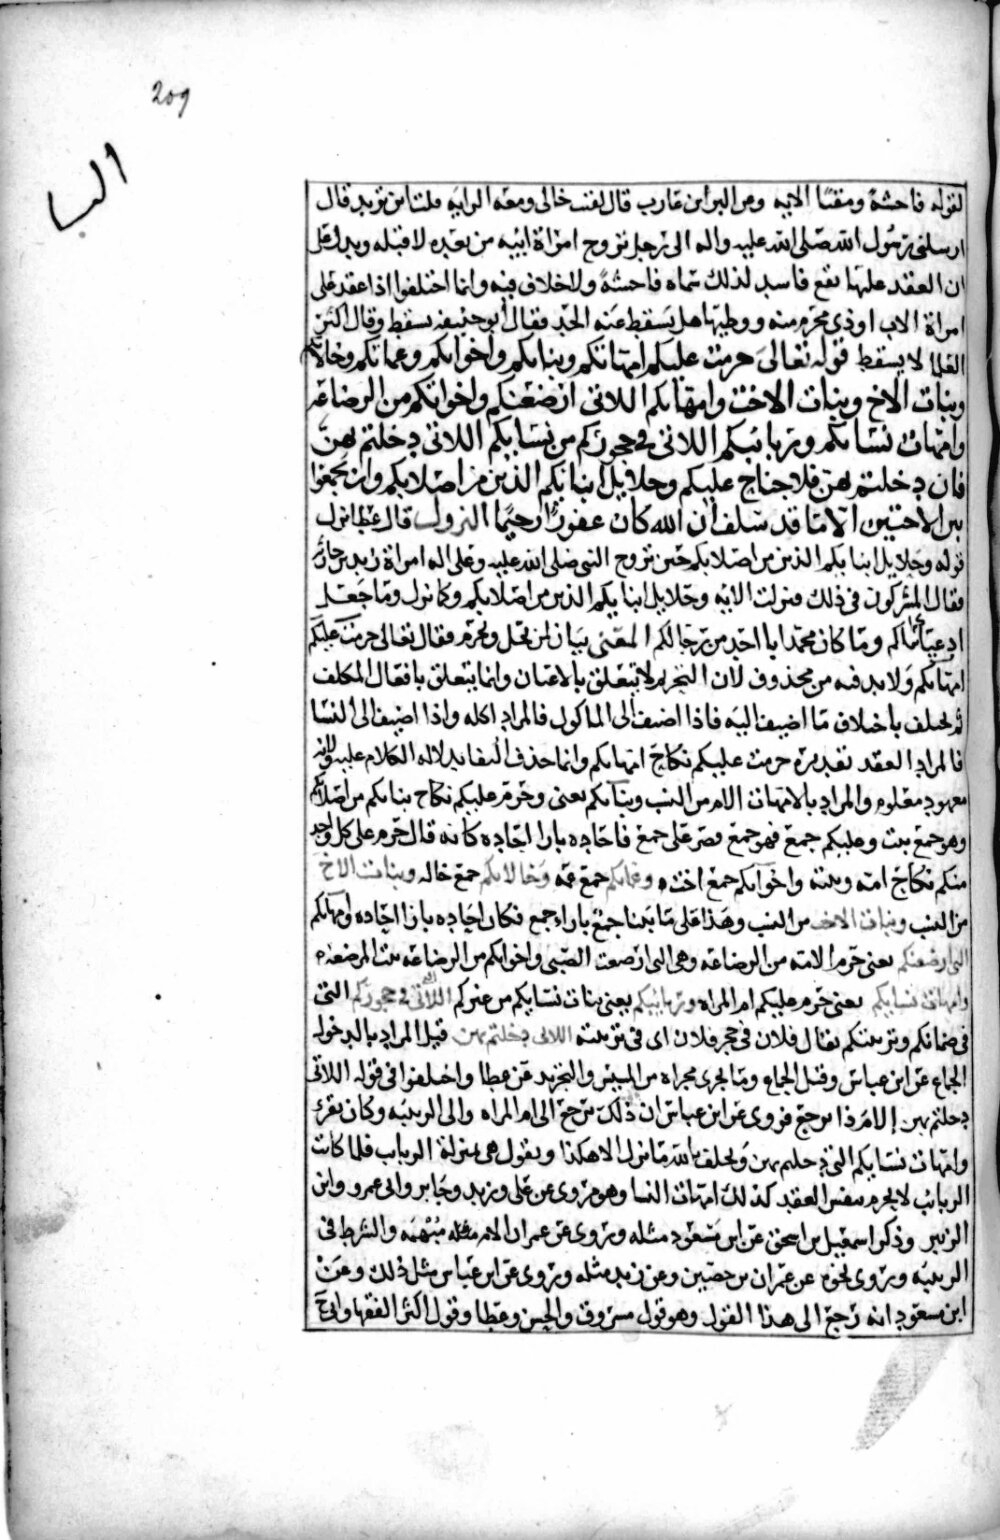 209
النسا
لقوله فاحشة ومقتا الايه وعن البرا بن عازب قال لقيت خالى ومعه الرايه فقلت اين تريد قال
ارسلنى رسول الله صلى الله عليه واله الى رجل تزوج امراة ابيه من بعده لاقتله ويدل على
ان العقد عليها يقع فاسد لذلك سماه فاحشة ولا خلاف فيه وانما اختلفوا اذا عقد على
امراة الاب او ذى محرم منه ووطيها هل يسقط عنه الحد فقال ابو حنيفه يسقط وقال اكثر
العلما لا يسقط قوله تعالى حرمت عليكم امهاتكم وبناتكم واخواتكم وعماتكم وخالاتكم
وبنات الاخ وبنات الاخت وامهاتكم اللاتى ارضعنكم واخواتكم من الرضاعه
وامهات نسايكم وربائبكم اللاتى فى حجوركم من نسايكم اللاتى دخلتم بهن
فان لم تكونوا دخلتم بهن فلا جناح عليكم وحلايل ابنائكم الذين من اصلابكم وان تجمعوا
بين الاختين الا ما قد سلف ان الله كان غفورا رحيما النزول قال عطا نزل
قوله وحلايل ابنايكم الذين من اصلابكم حين تزوج النبى صلى الله عليه وعلى اله امراة زيد بن حارثه
فقال المشركون فى ذلك فنزلت الايه وحلايل ابنايكم الذين من اصلابكم وكما نزل وما جعل
ادعياكم ابناكم وما كان محمد ابا احد من رجالكم المعنى بيان لمن تحل وتحرم فقال تعالى حرمت عليكم
امهاتكم ولا بد فيه من محذوف لان التحريم لا يتعلق بالاعيان وانما يتعلق بافعال المكلف
ثم يختلف باختلاف ما اضيف اليه فاذا اضيف الى الماكول فالمراد اكله واذا اضيف الى النسا
فالمراد العقد تقديره حرمت عليكم نكاح امهاتكم وانما حذف الثانى لدلاله الكلام عليه ولانه
معهود معلوم والمراد بالامهات الام من النسب وبناتكم يعنى وحرم عليكم نكاح بناتكم من اصلابكم
وهو جمع بنت وعليكم جمع فهو جمع قصر على جمع فاحاده بازا احاده كانه قال حرم على كل واحد
منكم نكاح امه وبنته واخواتكم جمع اخت وعماتكم جمع عمه وخالاتكم جمع خاله وبنات الاخ
من النسب وبنات الاخت من النسب وهذا على ما بينا جمع بازاء جمع فكان احاده بازا احاده وامهاتكم
التى ارضعنكم يعنى حرم الامه من الرضاعه وهى التى ارضعت الصبى واخواتكم من الرضاعه بنت المرضعه
وامهات نسايكم يعنى حرم عليكم ام المراه وربائبكم يعنى بنات نسايكم من غيركم اللاتى فى حجوركم التى
فى ضمانكم وتربيتكم يقال فلان فى حجر فلان اى فى تربيته اللاتى دخلتم بهن قيل المراد بالدخول
الجماع عن ابن عباس وقيل الجماع وما يجرى مجراه من المسيس والتجريد عن عطا واختلفوا فى قوله اللاتى
دخلتم بهن إلام ذا يرجع فروى عن ابن عباس ان ذلك يرجع الى ام المراه والى الربيبه وكان يقرء
وامهات نسايكم التى دخلتم بهن ويحلف بالله ما نزل الا هكذا ويقول هى بمنزلة الرباب فلما كانت
الربائب لا يحرم بنفس العقد كذلك امهات النسا وهو مروى عن على وزيد وجابر وابى عمرو وابن
الزبير وذكر اسمعيل بن اسحق عن ابن مسعود مثله وروى عن عمر ان الام مبهمه والشرط فى
الربيبه وروى نحوه عن عمران بن حصين وعن زيد مثله وروى عن ابن عباس مثل ذلك وعن
ابن مسعود انه رجع الى هذا القول وهو قول مسروق والحسن وعطا وقول اكثر الفقها وابى ح